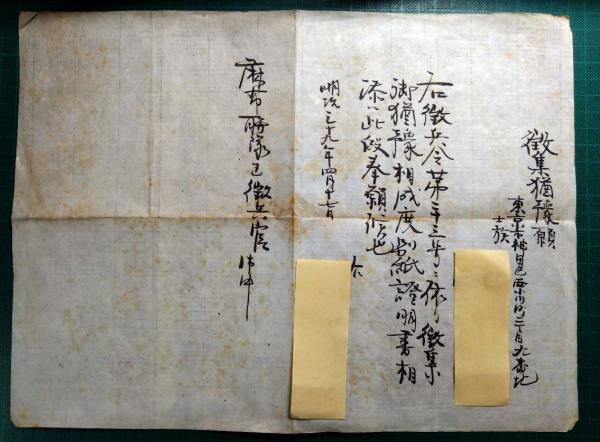 徴集猶豫願
東京市神田區西小川町二丁目九番地
士族
右徴兵令第二十三條ニ依リ徴集
御猶豫相成度別紙證明書相
添ヘ此段奉願候也
右
明治二十九年四月十七日
麻布聯隊區徴兵官 御中